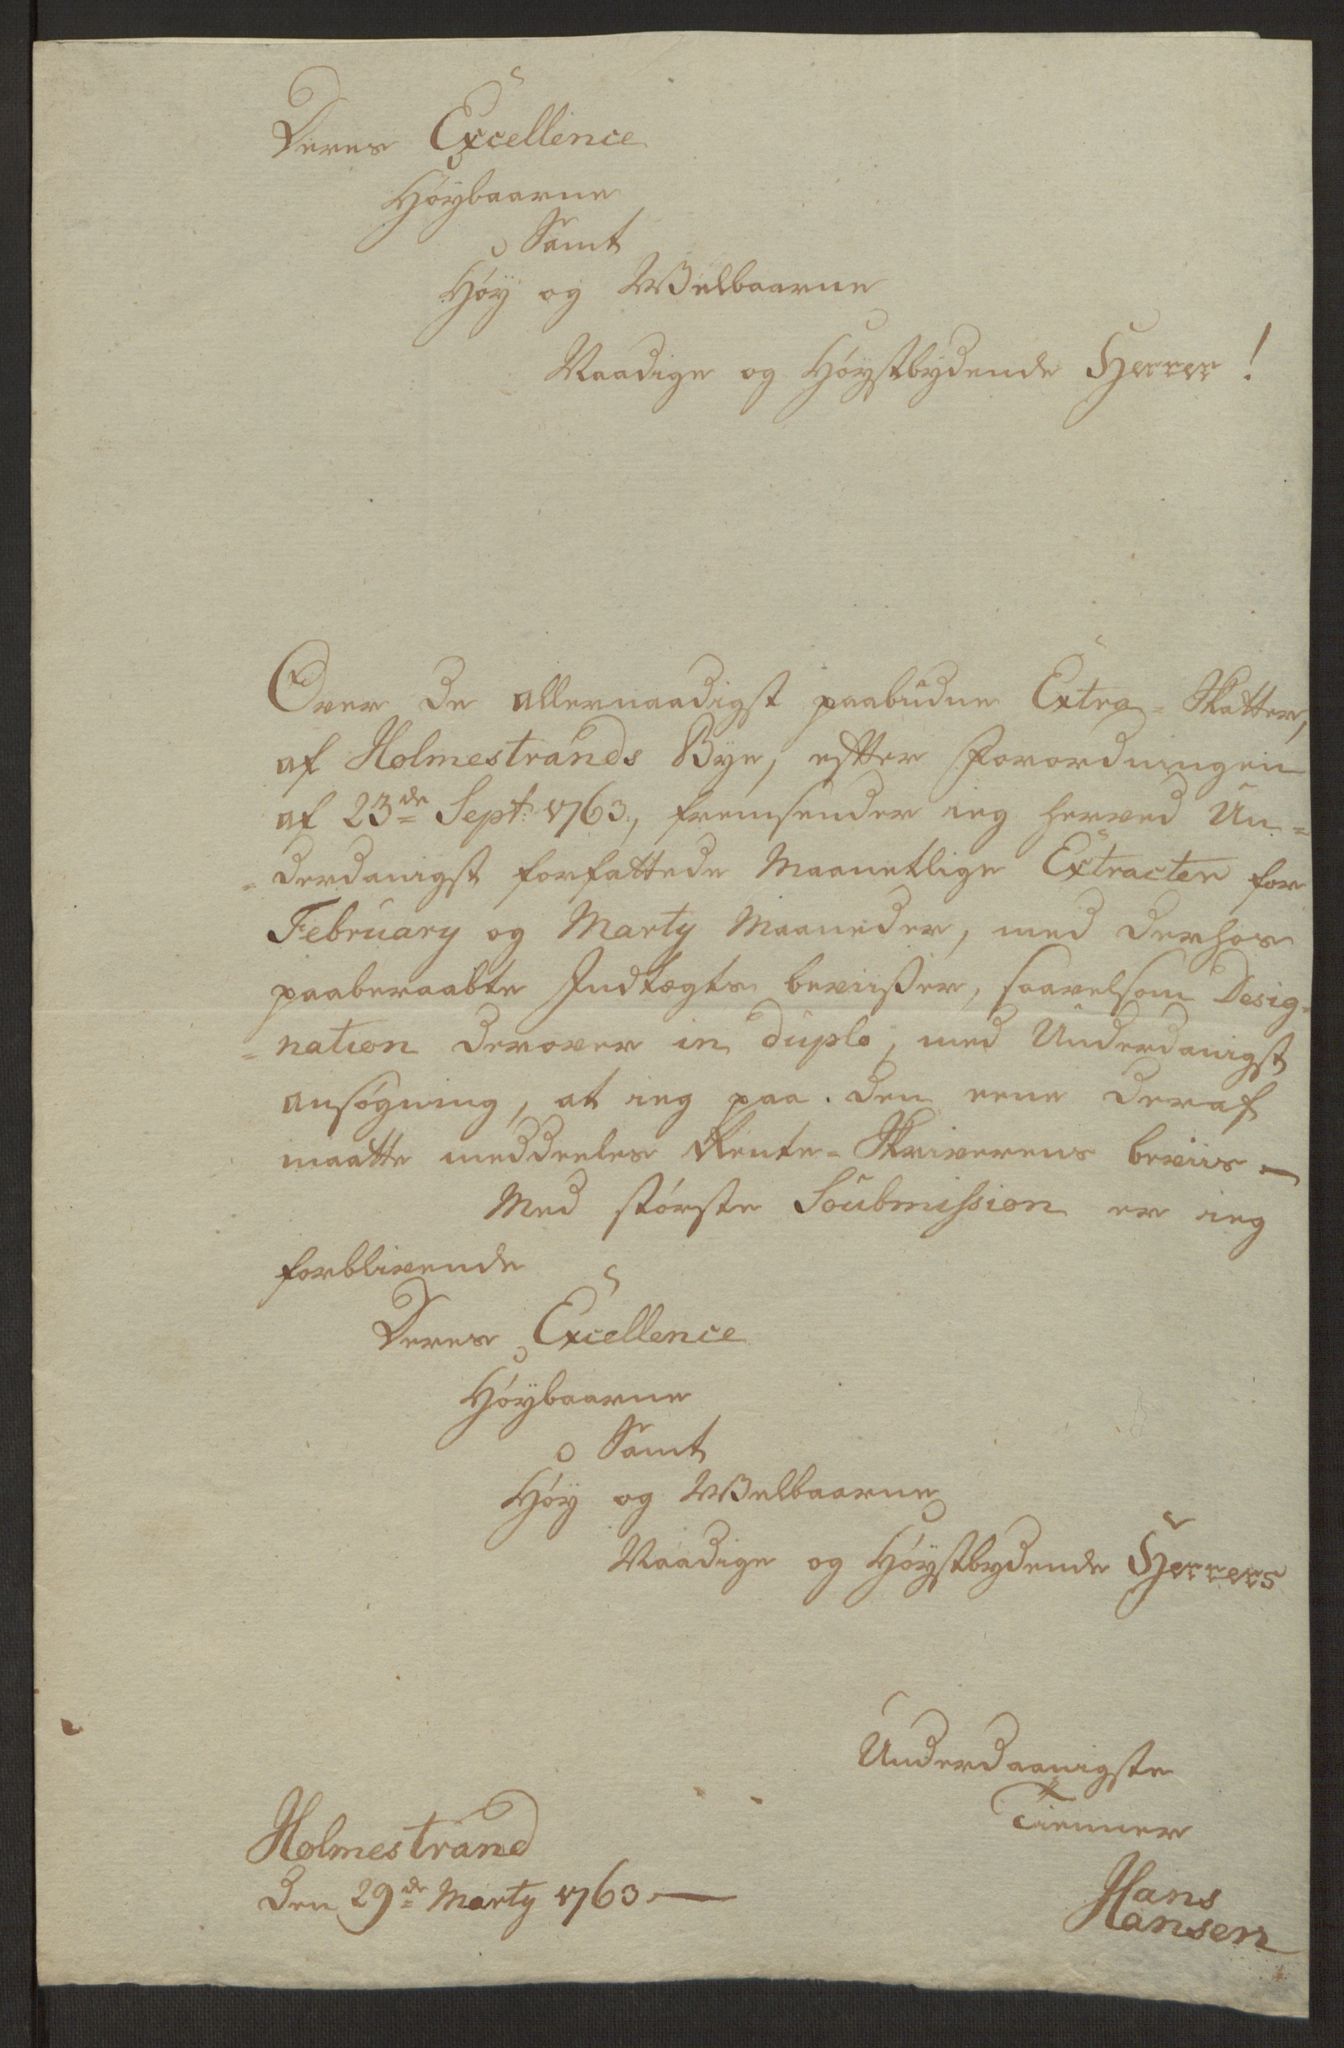 Deres Excellence
Høybaarne
Samt
Høy og Welbaarne
Naadige og Høystbydende Herrer!
Over de allernaadigst paabudne Extra-Skatter,
af Holmestrands Bye, efter Forordningen
af 23de Sept: 1763, fremsender ieg herved Un=
=derdanigst forfattede Maanetlige Extracter for
February og Marty Maaneder, med derhos
paaberaabte Indtægts beviiser, saavelsom Desig=
=nation derover in duplo, med Underdanigst
ansøgning, at ieg paa den eene deraf
maatte meddeeles Rente-Skriverens beviis —
Med største Soubmission er ieg
forblivende
Deres Excellence
Høybaarne
Samt
Høy og Welbaarne
Naadige og Høystbydende Herrers
Underdaanigste
Tienner
Holmestrand
den 29de Marty 1763 —
Hans
Hansen